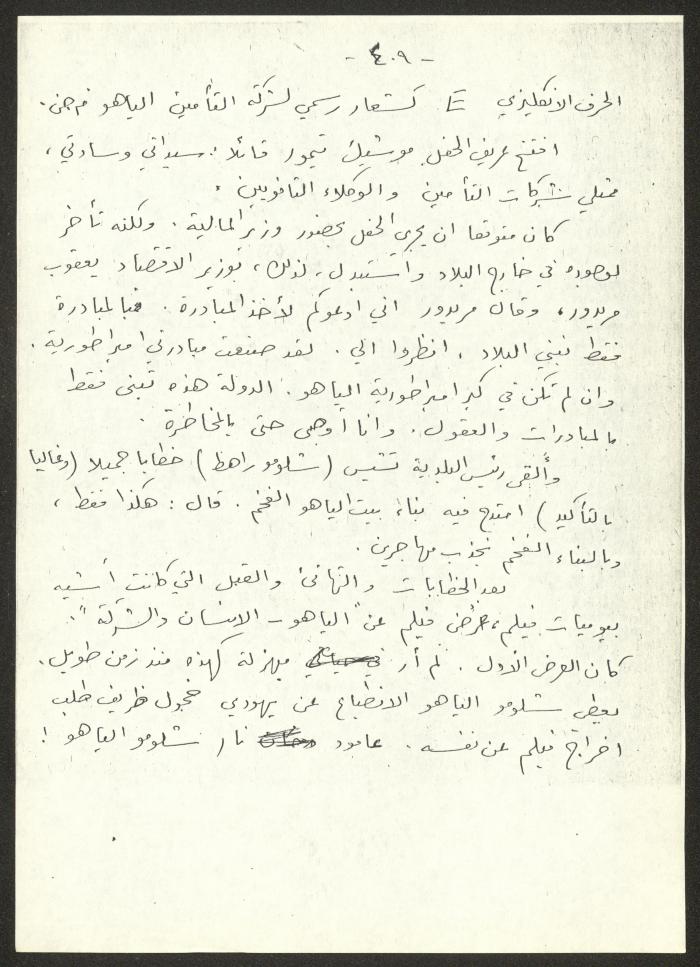 - ٤٠٩ -
الحرف الانكليزي كشعار رسمي لشركة التأمين الياهو
افتتح عريف الحفل موشيك تيمور قائلا: سيداتي وسادتي،
ممثلي شركات التأمين والوكلاء الثانويين.
كان متوقعا ان يجري الحفل بحضور وزير المالية. ولكنه تأخر
لوجوده في خارج البلاد واستبدل، لذلك، بوزير الاقتصاد يعقوب
مريدور، وقال مريدور اني ادعوكم لأخذ المبادرة. فبالمبادرة
فقط نبني البلاد، انظروا الي. لقد صنعت مبادرتي امبراطورية.
وان لم تكن في كبر امبراطورية الياهو. الدولة هذه تبنى فقط
بالمبادرات والعقول. وانا أوصي حتى بالمخاطرة.
وألقى رئيس البلدية تشيس (شلومو راهط) خطابا جميلا (وغاليا
بالتأكيد) امتدح فيه بناء بيت الياهو الفخم. قال: هكذا فقط،
وبالبناء الفخم نجذب مهاجرين.
بعد الخطابات والتهانئ والقبل التي كانت أشبه
بيوميات فيلم، عرض فيلم عن "الياهو - الانسان والشركة".
كان العرض الأول. لم أر مهزلة كهذه منذ زمن طويل.
يعطي شلومو الياهو الانطباع عن يهودي خجول ظريف طلب
اخراج فيلم عن نفسه. عامود نار شلومو الياهو!